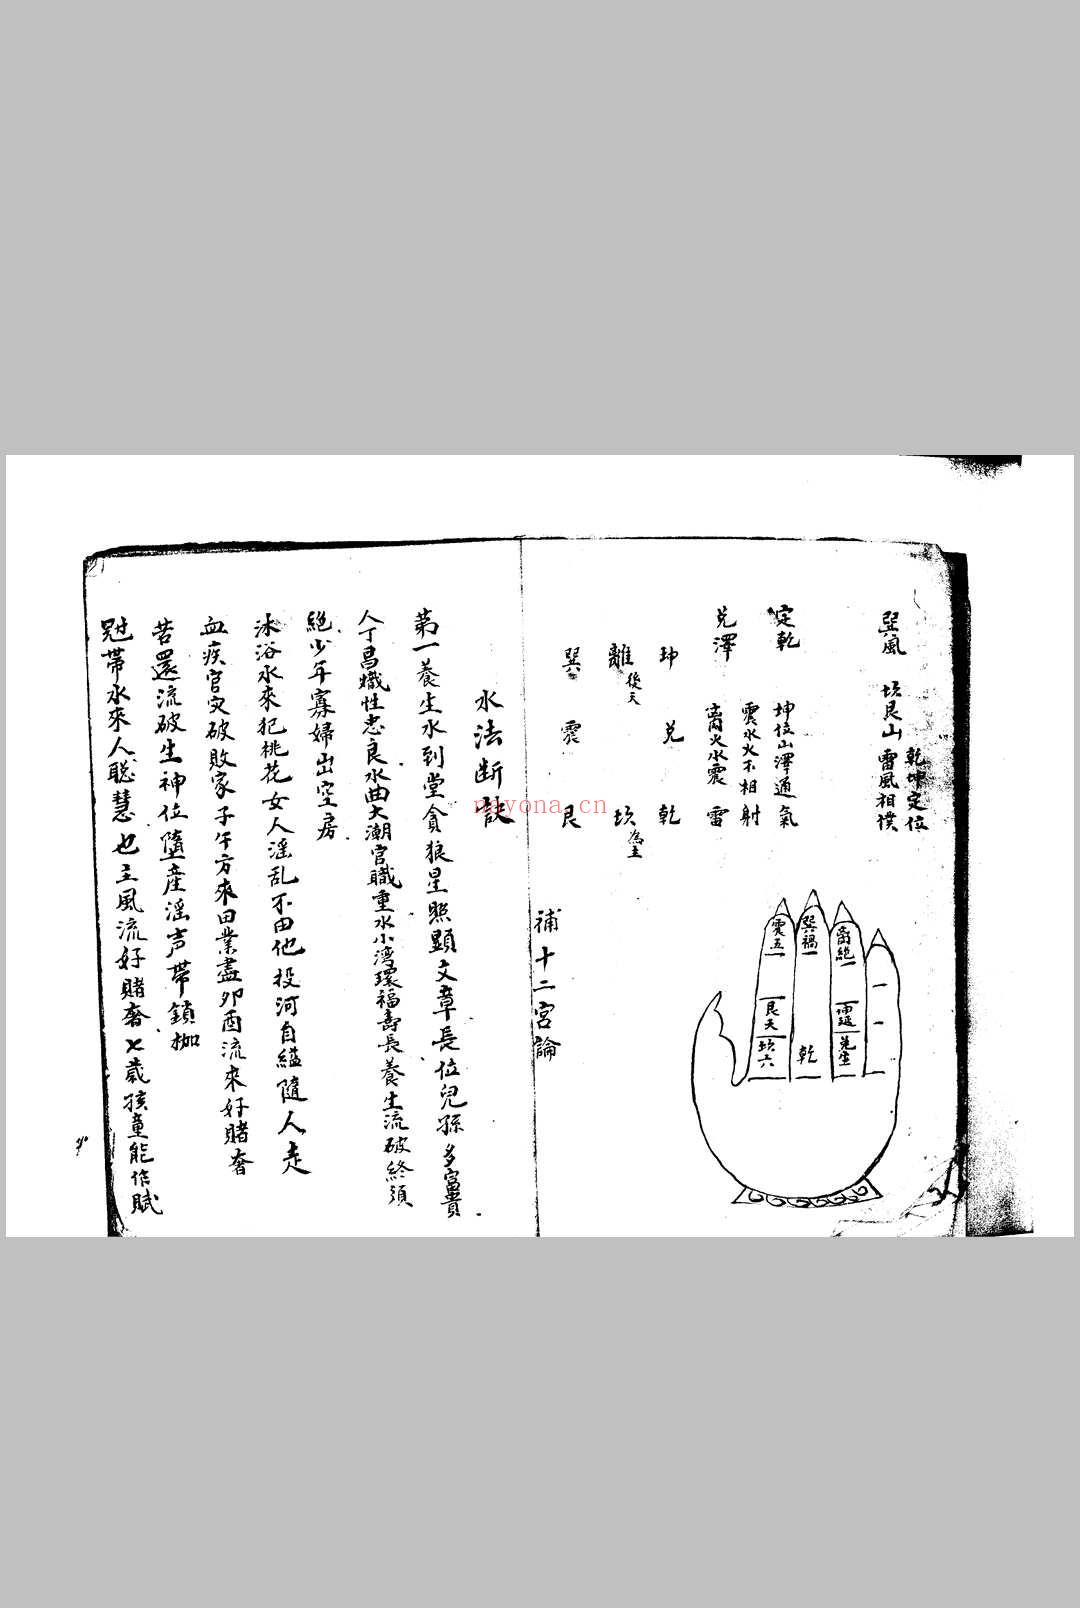 乾坤定位
巽風 坎艮山 雷風相僕
定乾 坤位山澤通氣
震水火不相射
兌澤 离火水震 雷
坤 兌 乾
離 後天 坎 為主
巽 震 艮
震五
艮天
坎六
巽禍
乾
离絕
坤延
兌生
補十二宮論
水法断訣
第一養生水到堂貪狼星照顯文章長位兒孫多富貴
人丁昌熾性忠良水曲大潮官職重水小湾環福壽長養生流破終須
絕少年寡婦出空房
沐浴水來犯桃花女人淫乱不由他投河自縊隨人走
血疾官灾破敗家子午方來田業盡卯酉流來好賭奢
苦還流破生神位墮產淫声帶鎖枷
冠帶水來人聪慧也主風流好賭奢七歲孩童能作賦
nayona.cn